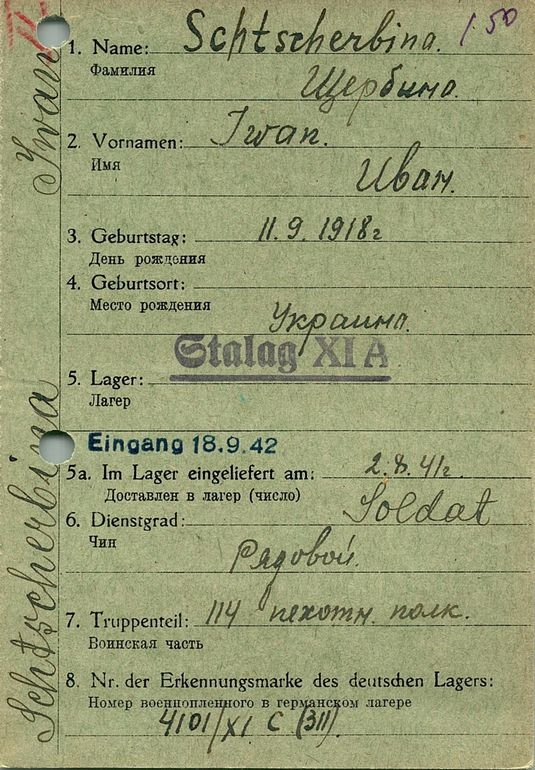 150
1. Name: Schtscherbina.
Фамилия
Щербина.
2. Vornamen: Iwan.
Имя
Иван.
3. Geburtstag: 11.9.1918г
День рождения
4. Geburtsort:
Место рождения
Украина.
Stalag XI A
5. Lager:
Лагер
Eingang 18.9.42
5a. Im Lager eingeliefert am: 2.8.41г.
Доставлен в лагер (число)
6. Dienstgrad: Soldat
Чин
Рядовой.
7. Truppenteil: 114 пехотн. полк.
Воинская часть
8. Nr. der Erkennungsmarke des deutschen Lagers:
Номер военнопленного в германском лагере
4101/XI C (311).
Schtscherbina Iwan